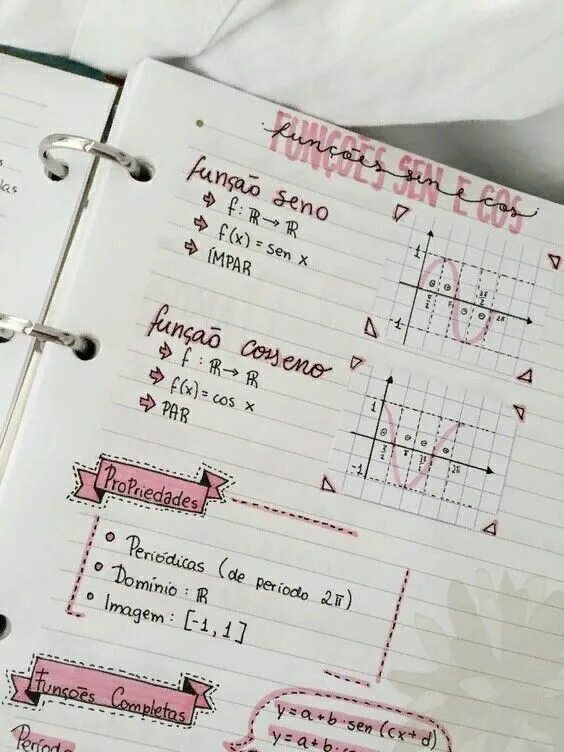 FUNÇÕES SEN E COS
funções sin e cos
função seno
f: ℝ → ℝ
f(x) = sen x
ÍMPAR
1
-1
π/2
π
3π/2
2π
função cosseno
f: ℝ → ℝ
f(x) = cos x
PAR
1
-1
π
2π
Propriedades
Periódicas (de período 2π)
Domínio: ℝ
Imagem: [-1, 1]
Funções Completas
y = a + b · sen (cx + d)
y = a + b ·
Período